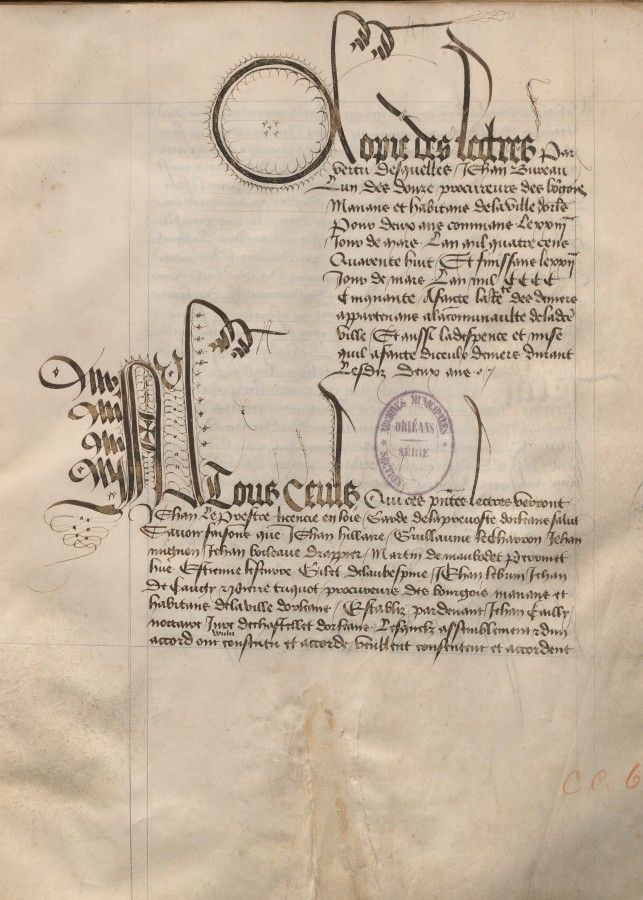 Copie des lectres Par
vertu desquelles Jehan Bureau
Lun des douze procureurs des bo'gois
Manans et habitans de la ville dorle'
Pour deux ans commans Le xxiiiie
Jour de mars Lan mil quatre cens
Quarente huit Et finissans le xxiiii
Jour de mars Lan mil CCCC
Cinquante A faicte la Rte des deniers
appartenans a la communaulte de ladte
ville Et aussi la despence et mise
quil a faicte diceulx deniers durant
Lesdiz deux ans
A Tous Ceulx Qui ces pn'tes lectres verront
Jehan Le Prestre licencie en loix Garde de la prevoste dorleans salut
Savoir faisons que Jehan hillaire Guillaume le Charron Jehan
mignon Jehan boileaue drappier Martin de maubodet Perrinet
hue Estienne Gilet delaubespine Jehan lebrun Jehan
de Cauchy Pierre truquot procureurs des bourgois manans et
habitans de la ville dorleans Establiz par devant Jehan Cailly
notaire Jure de chastellet dorleans Lesquelz assemblement et dun
accord ont voulu consentu et accorde veullent consentent et accordent
ARCHIVES MUNICIPALES
ORLÉANS
SÉRIE
SECTION
CC. 6